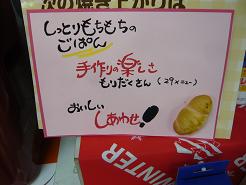 次の焼き上がりは
しっとりもちもちの
ごぱん
手作りの楽しさ
もりだくさん(29メニュー)
おいしい
しあわせ!
WINTER